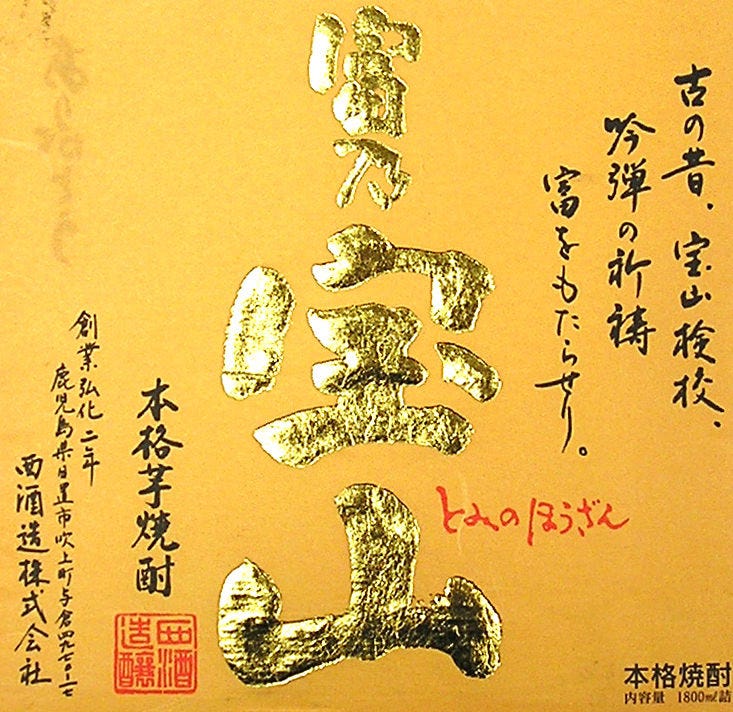 古の昔、宝山検校、
吟弾の祈祷
富をもたらせり。
富乃宝山
とみのほうざん
本格芋焼酎
創業弘化二年
鹿児島県日置市吹上町与倉四九七〇-一七
西酒造株式会社
西酒
造醸
本格焼酎
内容量 1800㎖詰
ありがとう